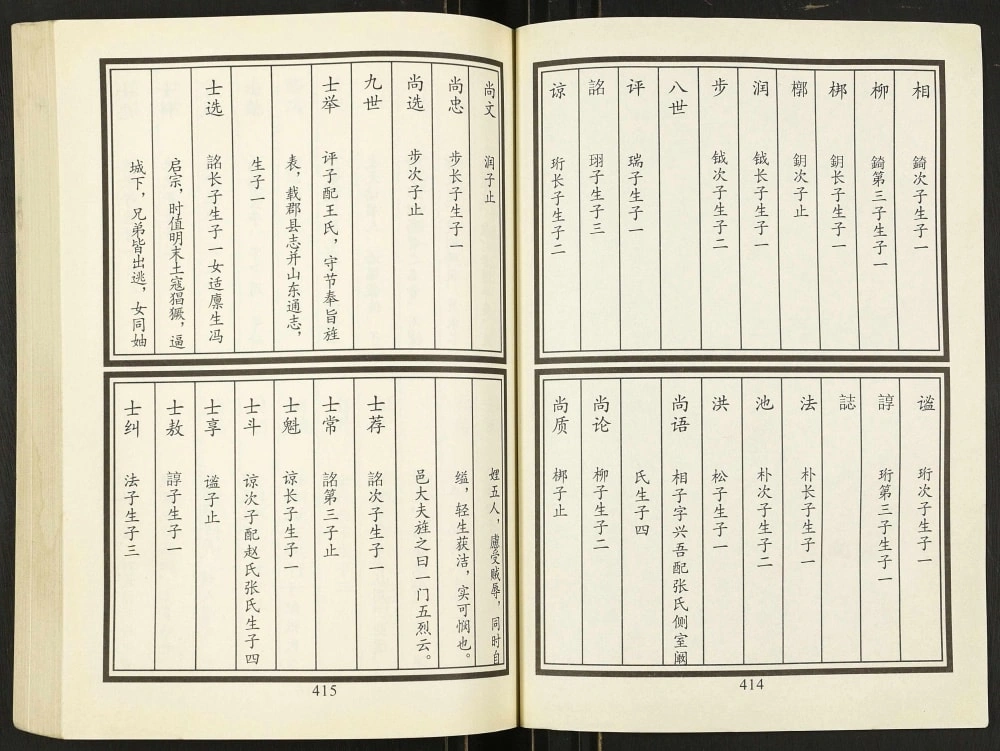 相 錡次子生子一
柳 錡第三子生子一
梆 鈅长子生子一
槨 鈅次子止
润 钺长子生子一
步 钺次子生子二
八世
评 瑞子生子一
詺 珝子生子三
谅 珩长子生子二
谧 珩次子生子一
諄 珩第三子生子一
誌
法 朴长子生子一
池 朴次子生子二
洪 松子生子一
尚语 相子字兴吾配张氏侧室阚
氏生子四
尚论 柳子生子二
尚质 梆子止
414
尚文 润子止
尚忠 步长子生子一
尚选 步次子止
九世
士举 评子配王氏，守节奉旨旌
表，载郡县志并山东通志，
生子一
士选 詺长子生子一女适廪生冯
启宗，时值明末土寇猖獗，逼
城下，兄弟皆出逃，女同妯
娌五人，慮受贼辱，同时自
缢，轻生获洁，实可悯也。
邑大夫旌之曰一门五烈云。
士荐 詺次子生子一
士常 詺第三子止
士魁 谅长子生子一
士斗 谅次子配赵氏张氏生子四
士享 谧子止
士敖 諄子生子一
士纠 法子生子三
415